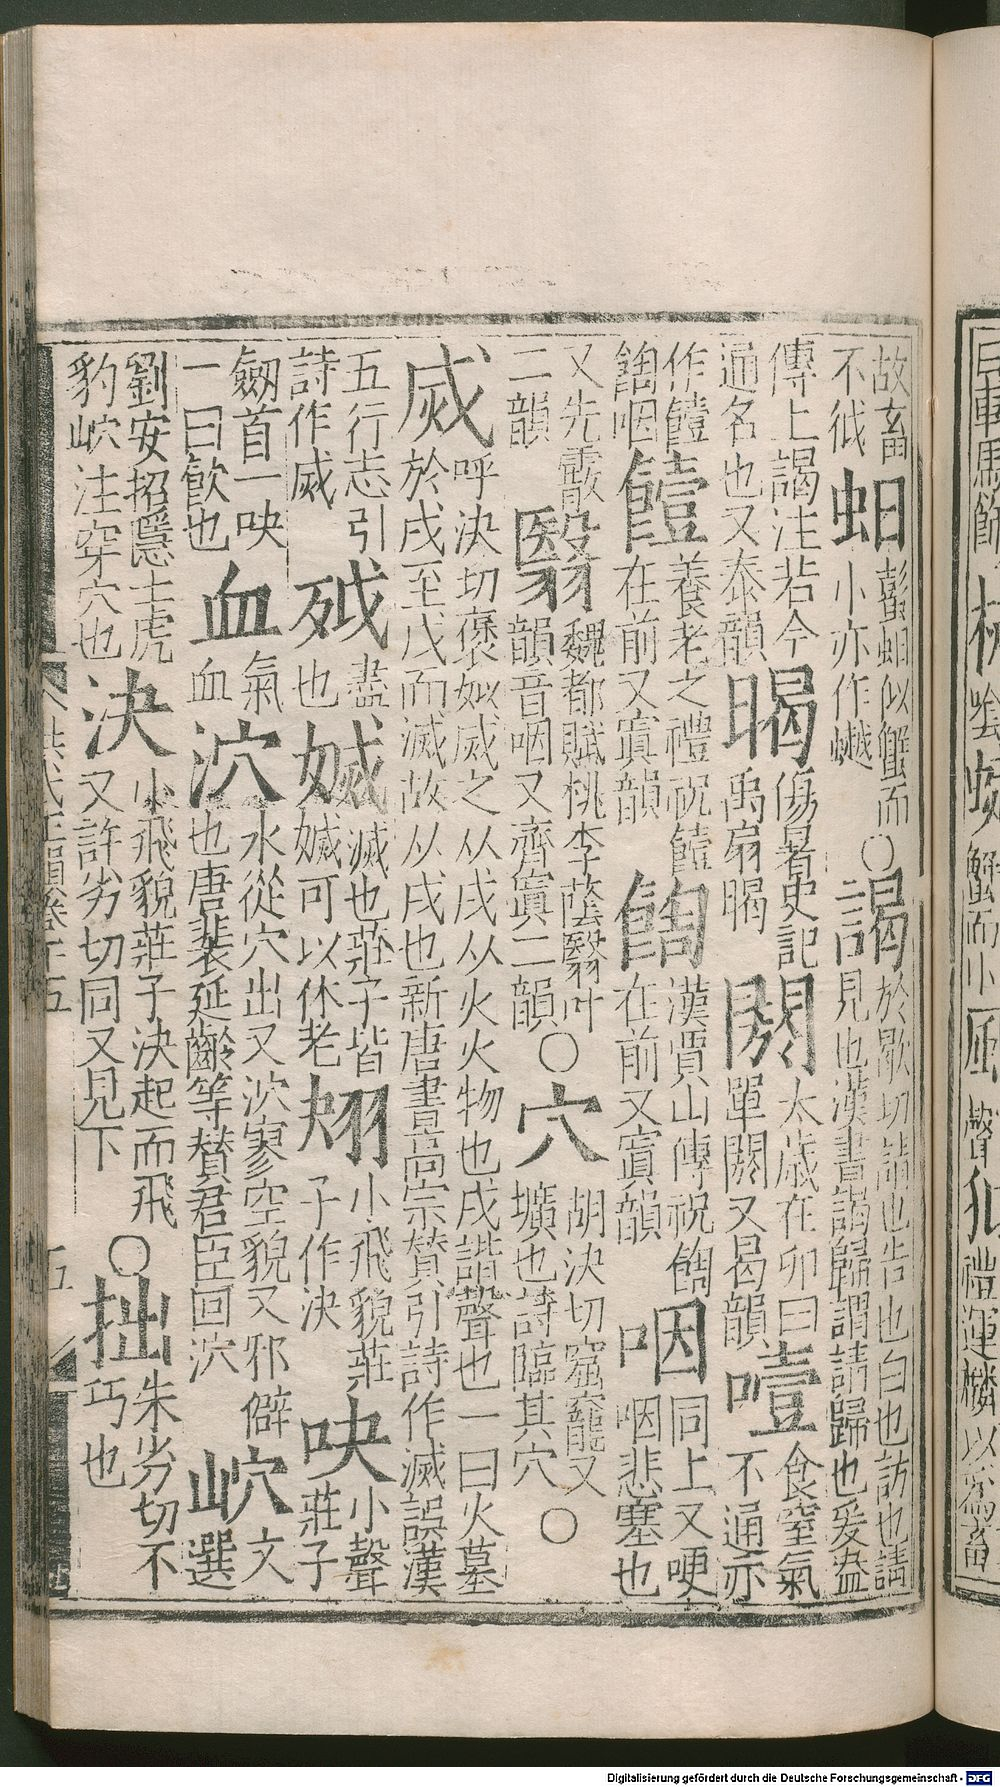 車馬飾 喻 蟹而小 聲 禮運麟以爲畜
故畜不狘 蚏 蟛蚏似蟹而小亦作 ○ 謁 於歇切請也告也白也訪也請見也漢書謁歸謂請歸也爰盎
傳上謁注若今通名也又泰韻 暍 傷暑史記禹扇暍 閼 太歲在卯曰單閼又曷韻 噎 食窒氣不通亦
作饐䭇咽 饐 養老之禮祝饐在前又寘韻 䭇 漢賈山傳祝䭇在前又寘韻 咽 同上又哽咽悲塞也
又先霰二韻 翳 魏都賦桃李蔭翳叶韻音咽又齊寘二韻 ○ 穴 胡決切窟竉又壙也詩臨其穴 ○
烕 呼決切褒姒烕之从戌从火火物也戌諧聲也一曰火墓於戌至戊而滅故从戌也新唐書高宗贊引詩作滅誤漢
五行志引詩作烕 㱡 盡也 㛼 滅也莊子眥㛼可以休老 翐 小飛貌莊子作決 吷 小聲莊子
劒首一吷一曰㰦也 血 氣血 泬 水從穴出又泬寥空貌又邪僻也唐裴延齡等贊君臣回泬 岤 文選
劉安招隱士虎豹岤注穿穴也 決 小飛貌莊子決起而飛又許劣切同又見下 ○ 拙 朱劣切不巧也
洪武正韻卷十五 五
Digitalisierung gefördert durch die Deutsche Forschungsgemeinschaft - DFG